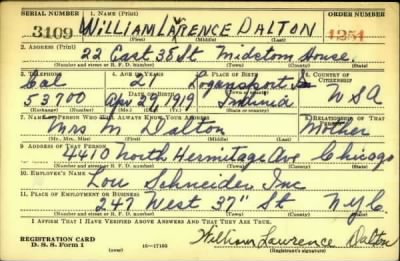 SERIAL NUMBER 1. NAME (Print) ORDER NUMBER
3109 WILLIAM LAWRENCE DALTON 1251
(First) (Middle) (Last)
2. ADDRESS (Print)
22 East 38 St Midston House
(Number and street or R. F. D. number) (Town) (County) (State)
3. TELEPHONE 4. AGE IN YEARS 5. PLACE OF BIRTH 6. COUNTRY OF CITIZENSHIP
Cal 21 Logansport
DATE OF BIRTH
53700 Apr 29, 1919 Indiana USA
(Exchange) (Number) (Mo.) (Day) (Yr.) (Town or county) (State or country)
7. NAME OF PERSON WHO WILL ALWAYS KNOW YOUR ADDRESS 8. RELATIONSHIP OF THAT PERSON
Mrs M Dalton Mother
(Mr., Mrs., Miss) (First) (Middle) (Last)
9. ADDRESS OF THAT PERSON
4410 North Hermitage Ave Chicago
(Number and street or R. F. D. number) (Town) (County) (State)
10. EMPLOYER'S NAME
Lou Schneider Inc
11. PLACE OF EMPLOYMENT OR BUSINESS
247 West 37" St NYC.
(Number and street or R. F. D. number) (Town) (County) (State)
I AFFIRM THAT I HAVE VERIFIED ABOVE ANSWERS AND THAT THEY ARE TRUE.
REGISTRATION CARD
D. S. S. Form 1 (over) 16—17105 William Lawrence Dalton
(Registrant's signature)